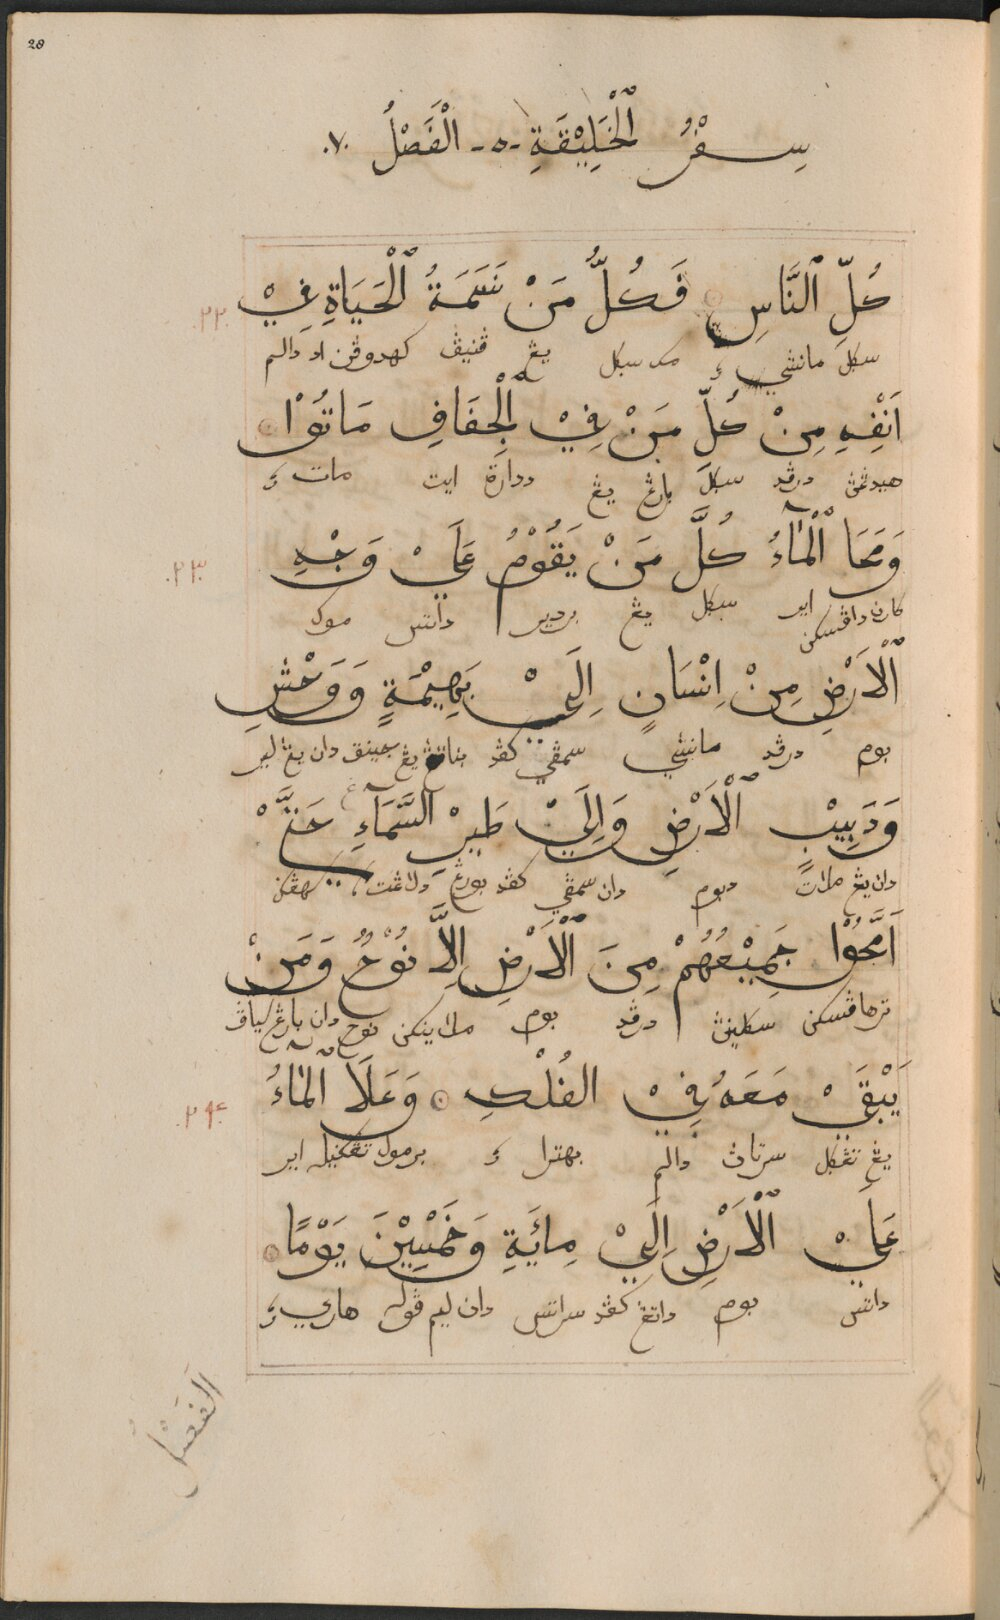 28
سِفْرُ الْخَلِيْقَةِ -٥- الْفَصْلُ ٧.
كُلِّ النَّاسِ ۞ فَكُلُّ مَنْ نَسَمَةُ الْحَيَاةِ فِيْ
٢٢.
سكل مانسي مک سكل يڠ ڤنيڤ كهدوڤن اد دالم
اَنْفِهِ مِنْ كُلِّ مَنْ فِيْ الْجَفَافِ مَاتُوْا ۞
هيدڠڽ درڤد سكل بارڠ يڠ ددارة ايت مات
وَمَحَا الْمَآءُ كُلَّ مَنْ يَقُوْمُ عَلَيْ وَجْهِ
٢٣.
كارن داڤسكن اير سكل يڠ بردير داتس موك
الْاَرْضِ مِنْ اِنْسَانٍ اِلَيْ بَهِيْمَةٍ وَوَحْشٍ
بوم درڤد مانسي سمڤي كڤد بناتڠ يڠ جينق دان يڠ لير
وَدَبِيْبِ الْاَرْضِ وَاِلَيْ طَيْرِ السَّمَآءِ حَتَّيْ
دان يڠ ملات دبوم دان سمڤي كڤد بورڠ دلاڠت كهڤكن
اَمَّحُوْا جَمِيْعُهُمْ مِنَ الْاَرْضِ اِلاَّ نُوْحُ وَمَنْ
ترهاڤسكن سكلين درڤد بوم ملاينكن نوح دان بارڠ سياڤ
يَبْقَيْ مَعَهُ فِيْ الفُلْكِ ۞ وَعَلَا الْمَآءُ
٢٤.
يڠ تڠكل سرتاڽ دالم بهترا برمول تڠكيله اير
عَلَيْ الْاَرْضِ اِلَيْ مِائَةِ وَخَمْسِيْنَ يَوْمًا ۞
داتس بوم داتڠ كڤد سراتس دان ليم ڤوله هاري
الفصل